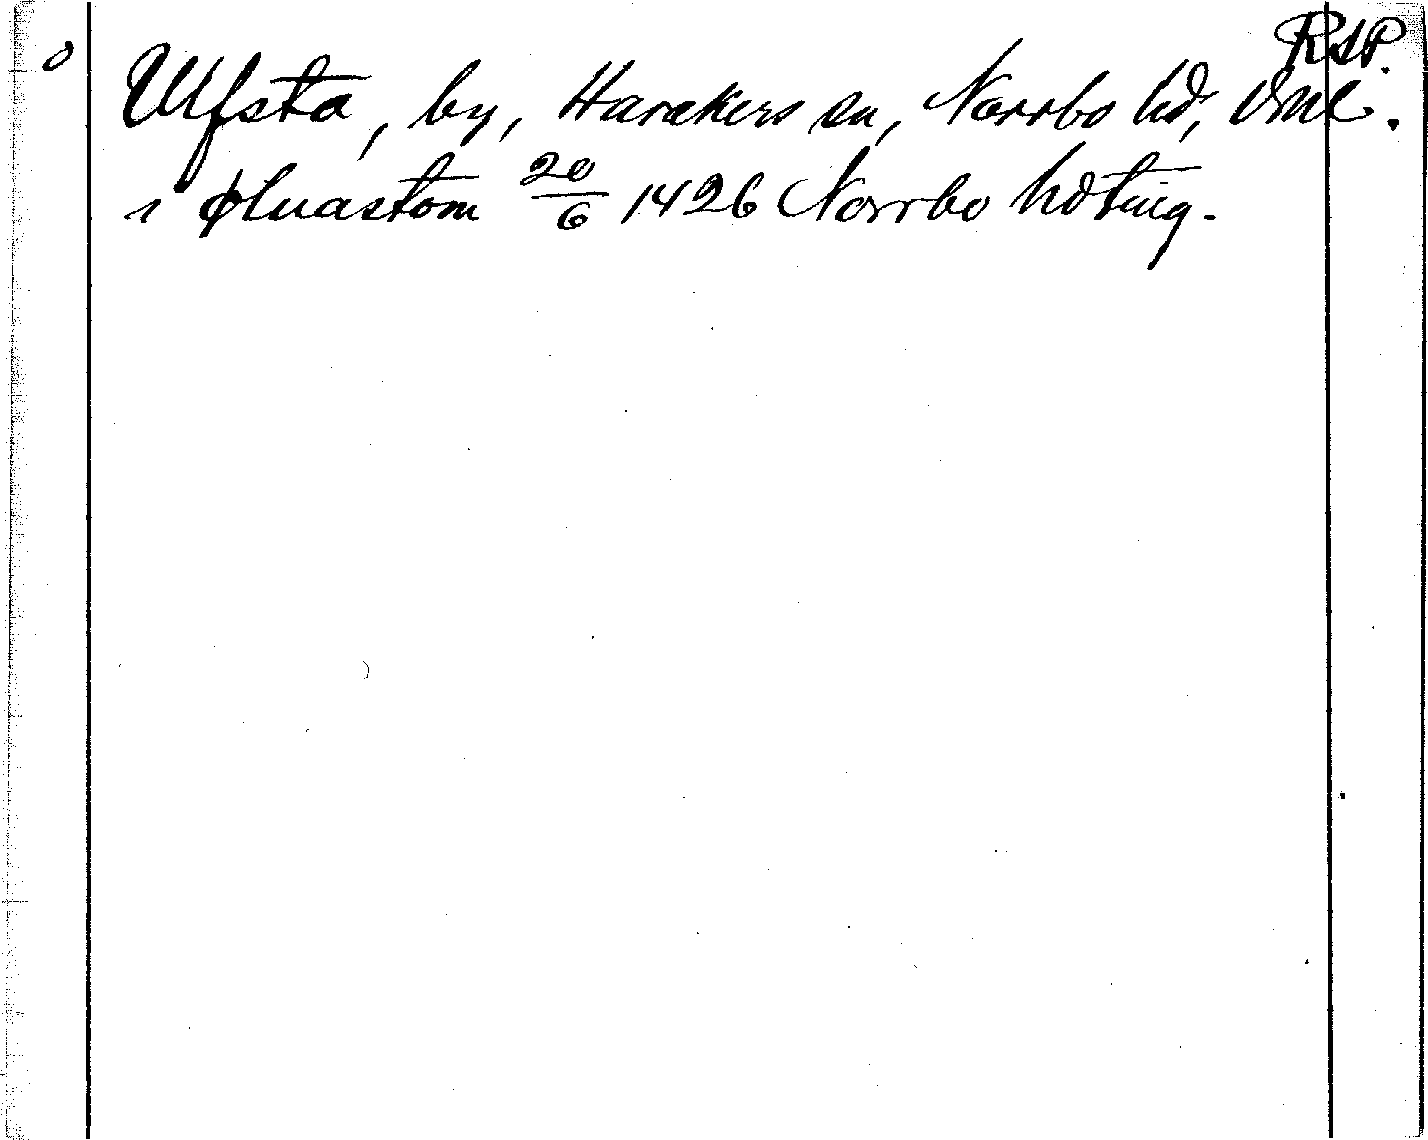 RSP.
Ulfsta, by, Harakers sn, Norrbo hd, Vml.
i øluastom 20/6 1426 Norrbo hdting.